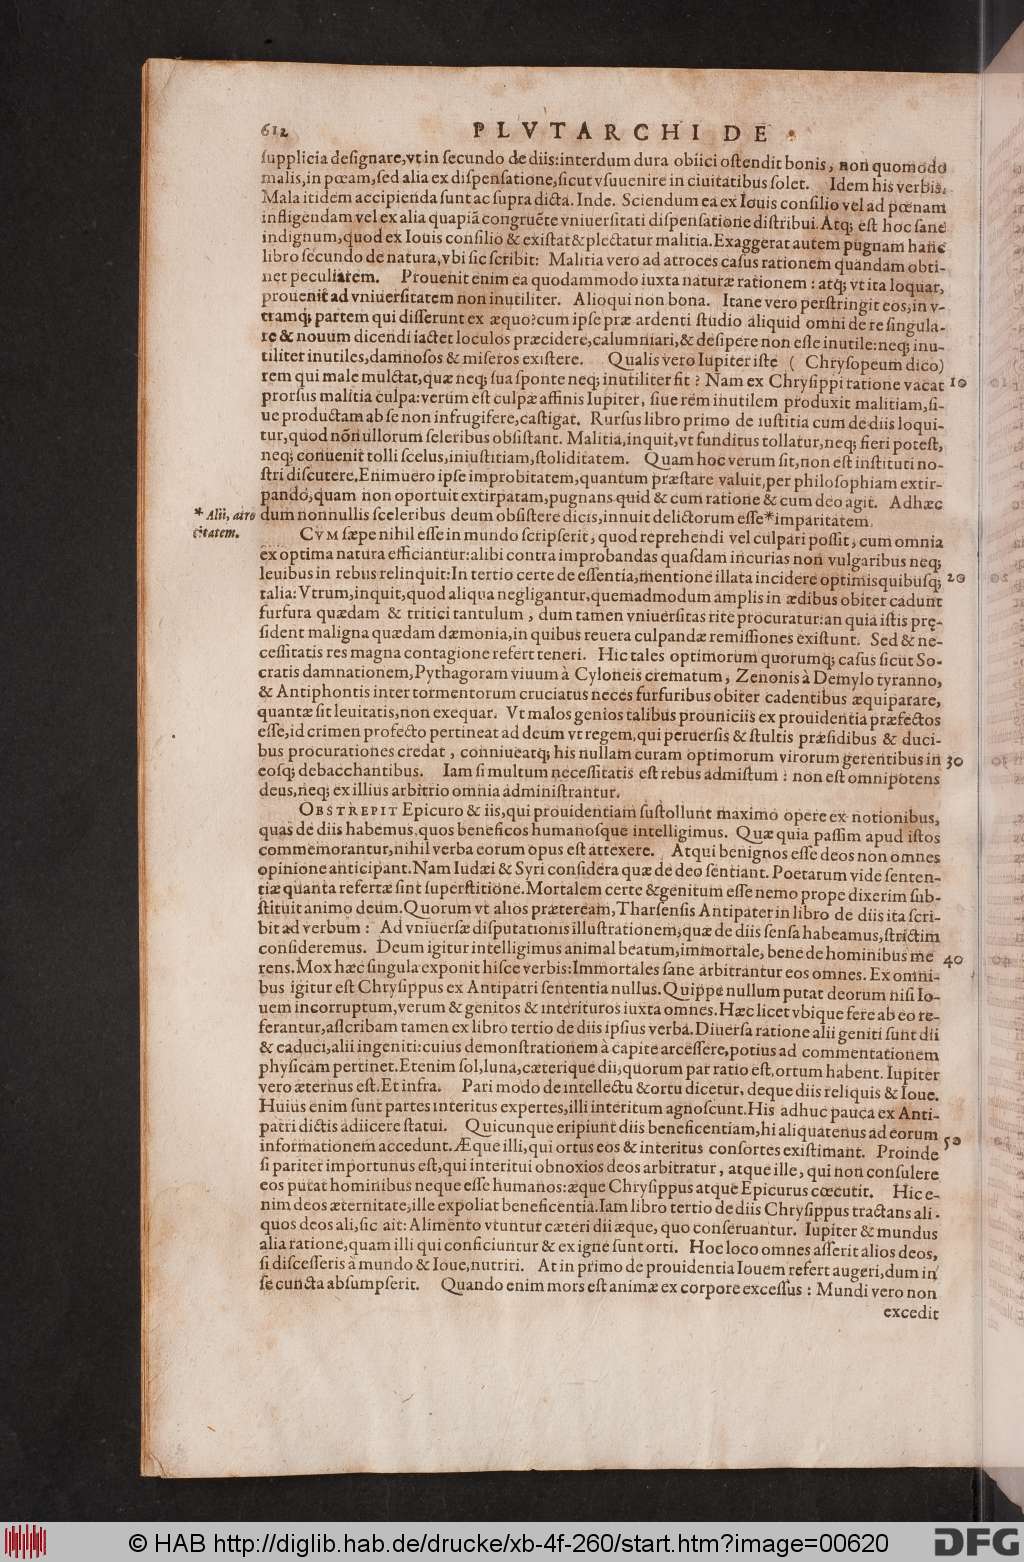 612
PLVTARCHI DE
ſupplicia deſignare,vt in ſecundo de diis:interdum dura obiici oſtendit bonis, non quomodo
malis,in pœam,ſed alia ex diſpenſatione,ſicut vſuuenire in ciuitatibus ſolet. Idem his verbis.
Mala itidem accipienda ſunt ac ſupra dicta. Inde. Sciendum ea ex Iouis conſilio vel ad pœnam
infligendam vel ex alia quapiã congruẽte vniuerſitati diſpenſatione diſtribui. Atq; eſt hoc ſane
indignum,quod ex Iouis conſilio & exiſtat & plectatur malitia. Exaggerat autem pugnam hanc
libro ſecundo de natura,vbi ſic ſcribit: Malitia vero ad atroces caſus rationem quandam obti-
net peculiarem. Prouenit enim ea quodammodo iuxta naturæ rationem : atq; vt ita loquar,
prouenit ad vniuerſitatem non inutiliter. Alioqui non bona. Itane vero perſtringit eos,in v-
tramq; partem qui diſſerunt ex æquo?cum ipſe præ ardenti ſtudio aliquid omni de re ſingula-
re & nouum dicendi iactet loculos præcidere,calumniari,& deſipere non eſſe inutile:neq; inu-
tiliter inutiles,damnoſos & miſeros exiſtere. Qualis vero Iupiter iſte ( Chryſopeum dico)
rem qui male mulctat,quæ neq; ſua ſponte neq; inutiliter fit ? Nam ex Chryſippi ratione vacat 10
prorſus malitia culpa:verum eſt culpæ affinis Iupiter, ſiue rem inutilem produxit malitiam,ſi-
ue productam ab ſe non infrugifere,caſtigat. Rurſus libro primo de iuſtitia cum de diis loqui-
tur,quod nõnullorum ſceleribus obſiſtant. Malitia,inquit,vt funditus tollatur,neq; fieri poteſt,
neq; conuenit tolli ſcelus,iniuſtitiam,ſtoliditatem. Quam hoc verum ſit,non eſt inſtituti no-
ſtri diſcutere,Enimuero ipſe improbitatem,quantum præſtare valuit,per philoſophiam extir-
pando,quam non oportuit extirpatam,pugnans quid & cum ratione & cum deo agit. Adhæc
* Alii, atro
citatem.
dum nonnullis ſceleribus deum obſiſtere dicis,innuit delictorum eſſe*imparitatem.
CVM ſæpe nihil eſſe in mundo ſcripſerit, quod reprehendi vel culpari poſſit, cum omnia
ex optima natura efficiantur:alibi contra improbandas quaſdam incurias non vulgaribus neq;
leuibus in rebus relinquit:In tertio certe de eſſentia,mentione illata incidere optimisquibuſq; 20
talia: Vtrum,inquit,quod aliqua negligantur,quemadmodum amplis in ædibus obiter cadunt
furfura quædam & tritici tantulum , dum tamen vniuerſitas rite procuratur:an quia iſtis prę-
ſident maligna quædam dæmonia,in quibus reuera culpandæ remiſſiones exiſtunt. Sed & ne-
ceſſitatis res magna contagione refert teneri. Hic tales optimorum quorumq; caſus ſicut So-
cratis damnationem,Pythagoram viuum à Cyloneis crematum, Zenonis à Demylo tyranno,
& Antiphontis inter tormentorum cruciatus neces furfuribus obiter cadentibus æquiparare,
quantæ ſit leuitatis,non exequar. Vt malos genios talibus prouniciis ex prouidentia præfectos
eſſe,id crimen profecto pertineat ad deum vt regem,qui peruerſis & ſtultis præſidibus & duci-
bus procurationes credat , conniueatq; his nullam curam optimorum virorum gerentibus in 30
eoſq; debacchantibus. Iam ſi multum neceſſitatis eſt rebus admiſtum : non eſt omnipotens
deus,neq; ex illius arbitrio omnia adminiſtrantur.
OBSTREPIT Epicuro & iis,qui prouidentiam ſuſtollunt maximo opere ex notionibus,
quas de diis habemus,quos beneficos humanoſque intelligimus. Quæ quia paſſim apud iſtos
commemorantur,nihil verba eorum opus eſt attexere. Atqui benignos eſſe deos non omnes
opinione anticipant. Nam Iudæi & Syri conſidera quæ de deo ſentiant. Poetarum vide ſenten-
tiæ quanta refertæ ſint ſuperſtitione. Mortalem certe & genitum eſſe nemo prope dixerim ſub-
ſtituit animo deum. Quorum vt alios præteream, Tharſenſis Antipater in libro de diis ita ſcri-
bit ad verbum : Ad vniuerſæ diſputationis illuſtrationem,quæ de diis ſenſa habeamus,ſtrictim
conſideremus. Deum igitur intelligimus animal beatum,immortale, bene de hominibus me 40
rens. Mox hæc ſingula exponit hiſce verbis:Immortales ſane arbitrantur eos omnes. Ex omni-
bus igitur eſt Chryſippus ex Antipatri ſententia nullus. Quippe nullum putat deorum niſi Io-
uem incorruptum,verum & genitos & interituros iuxta omnes. Hæc licet vbique fere ab eo re-
ferantur,aſcribam tamen ex libro tertio de diis ipſius verba. Diuerſa ratione alii geniti ſunt dii
& caduci,alii ingeniti:cuius demonſtrationem à capite arceſſere,potius ad commentationem
phyſicam pertinet. Etenim ſol,luna,cæterique dii,quorum par ratio eſt,ortum habent. Iupiter
vero æternus eſt. Et infra. Pari modo de intellectu & ortu dicetur, deque diis reliquis & Ioue.
Huius enim ſunt partes interitus expertes,illi interitum agnoſcunt. His adhuc pauca ex Anti-
patri dictis adiicere ſtatui. Quicunque eripiunt diis beneficentiam,hi aliquatenus ad eorum
informationem accedunt. Æque illi,qui ortus eos & interitus conſortes exiſtimant. Proinde 50
ſi pariter importunus eſt,qui interitui obnoxios deos arbitratur, atque ille, qui non conſulere
eos putat hominibus neque eſſe humanos:æque Chryſippus atque Epicurus cœcutit. Hic e-
nim deos æternitate,ille expoliat beneficentia. Iam libro tertio de diis Chryſippus tractans ali-
quos deos ali,ſic ait: Alimento vtuntur cæteri dii æque, quo conſeruantur. Iupiter & mundus
alia ratione,quam illi qui conficiuntur & ex igne ſunt orti. Hoc loco omnes aſſerit alios deos,
ſi diſceſſeris à mundo & Ioue,nutriri. At in primo de prouidentia Iouem refert augeri,dum in
ſe cuncta abſumpſerit. Quando enim mors eſt animæ ex corpore exceſſus : Mundi vero non
excedit
© HAB http://diglib.hab.de/drucke/xb-4f-260/start.htm?image=00620
DFG